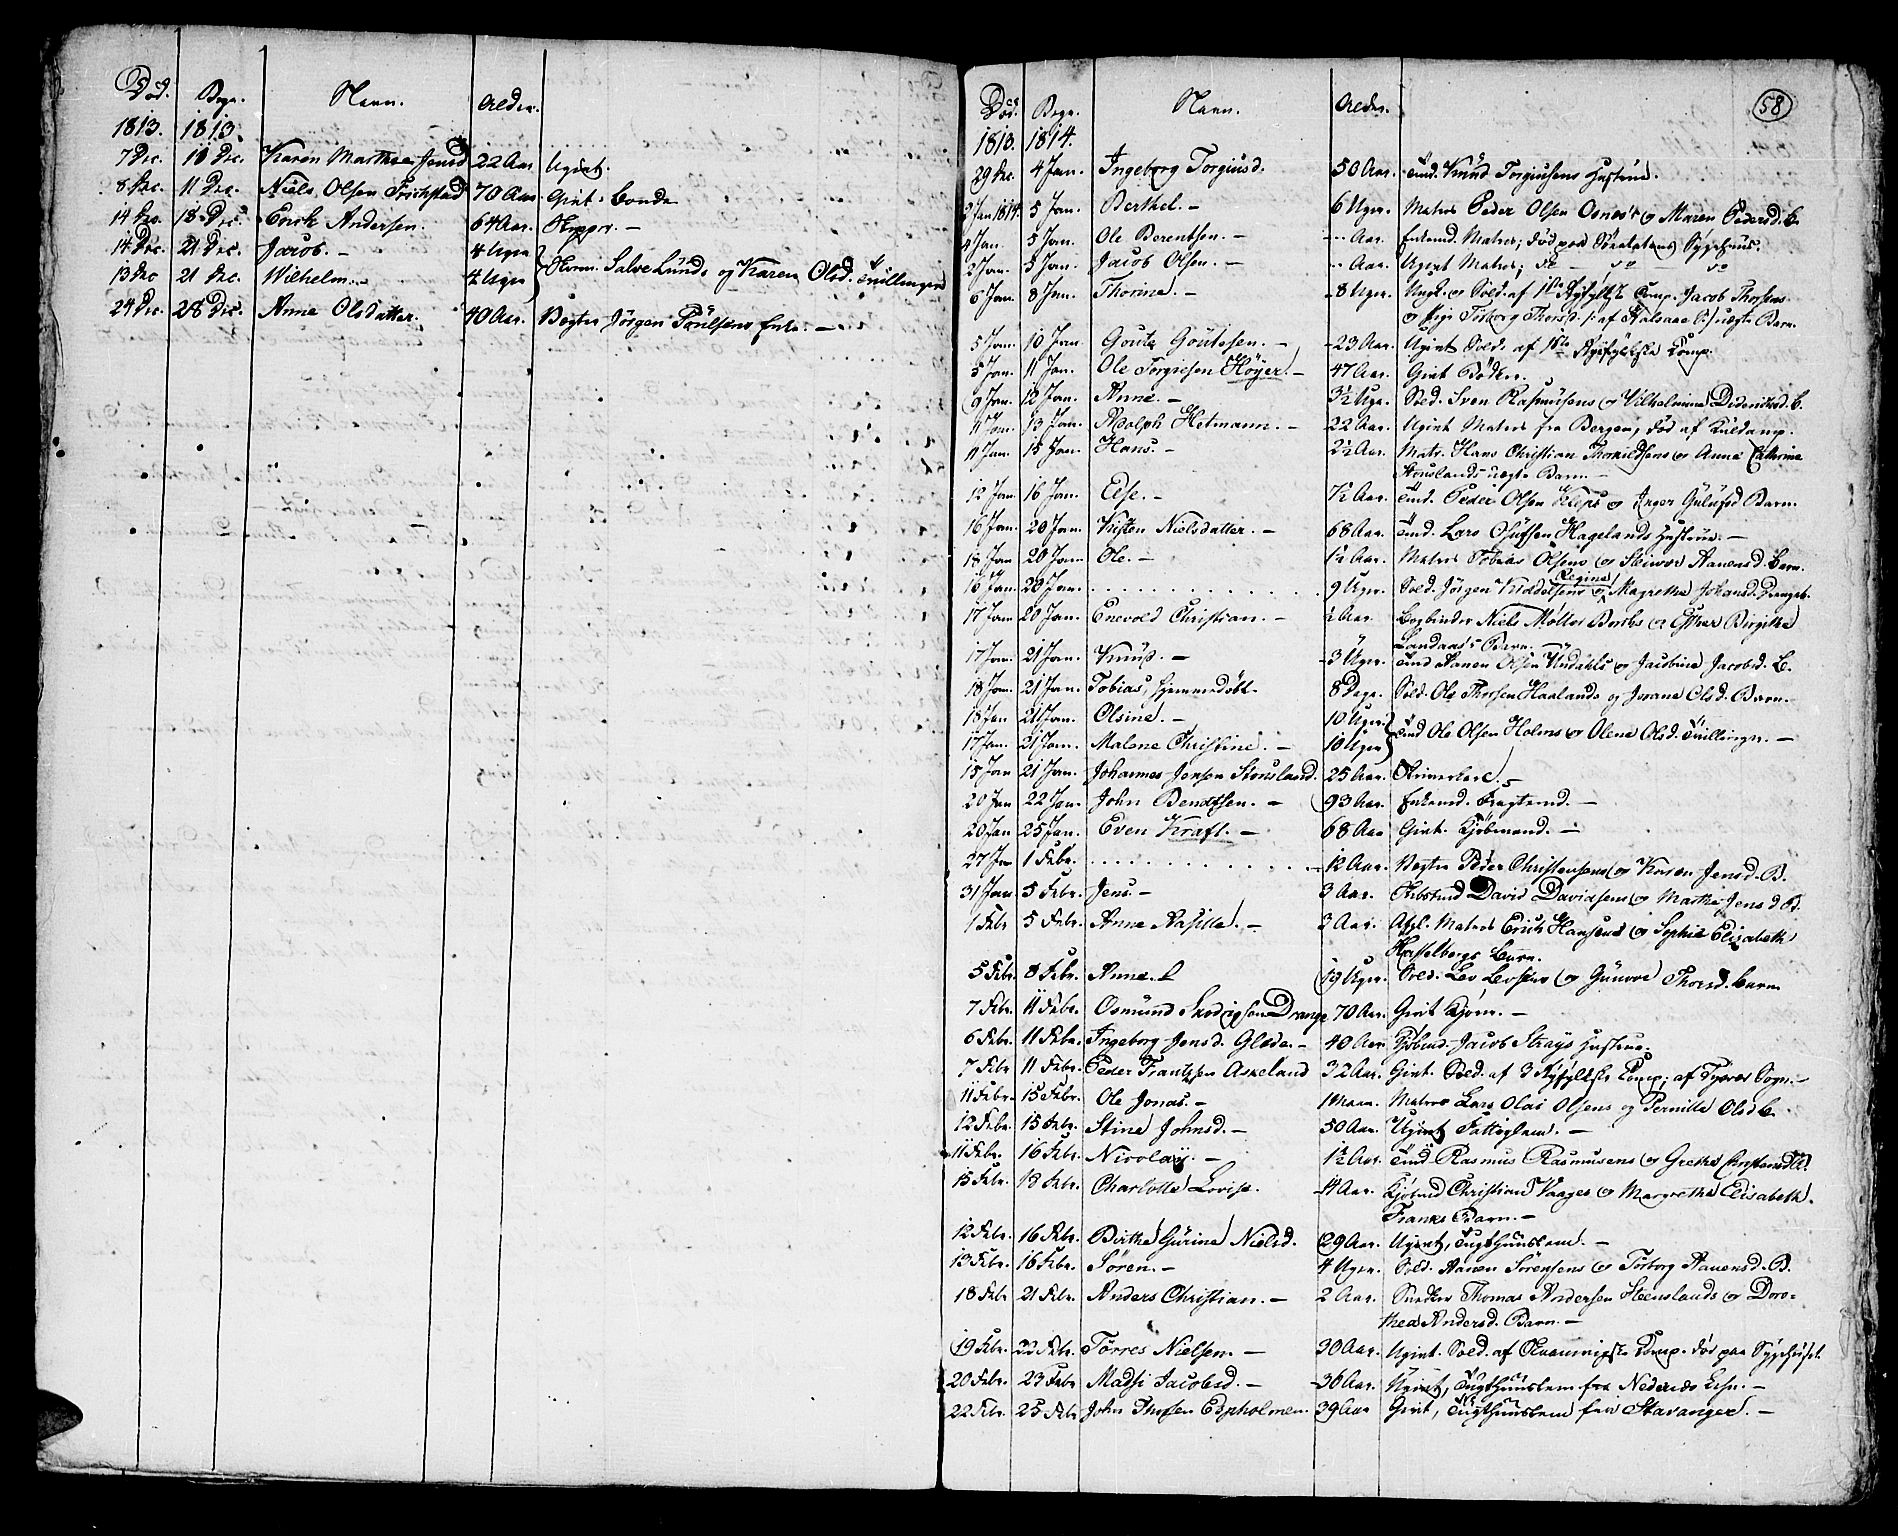 Død. Begr. Navn. Alder.
1813. 1813.
7 Dec. 10 Dec. Karen Marthea Jensd 22 Aar Ugivt.
8 Dec. 11 Dec. Niels Olsen 70 Aar Givt Bonde
14 Dec. 18 Dec. Erich Andersen. 64 Aar. —
14 Dec. 21 Dec. Jacob. — 4 Uger
13 Dec 21 Dec. Wilhelm. — 4 Uger Salve Lunds og Karen Olsd. Tvillinger
24 Dec. 28 Dec. Anne Olsdatter. 40 Aar. Vægter Jörgen Poulsens Enke. —
58
Død. Begr. Navn. Alder.
1813. 1814.
29 Dec. 4 Jan. Ingeborg Torgiusd. 50 Aar. Knud Torgiusens Hustrue.
2 Jan 1814. 5 Jan. Berthel. — 6 Uger. Matros Peder Olsen og Maren Pedersd. B.
4 Jan. 5 Jan. Ole Berentsen. — -- Aar. Enkemd. Matros; død paa Sygehus.
2 Jan. 5 Jan. Jacob Olsen. — -- Aar. Ugivt Matros; do — do — do
6 Jan. 8 Jan. Thorine. — 8 Uger. Ungk. og Sold. af 1ste Comp. Jacob Thorsens
og Pige Torborg Thorsd. uægte Barn.
5 Jan. 10 Jan. Goute Goutesen. — 23 Aar. Ugivt Sold. af 1ste Ryfylkske Comp.
5 Jan. 11 Jan. Ole Torgiesen Höyer. — 47 Aar. Givt Bödker.
9 Jan. 12 Jan. Anne. — 3½ Uge. Sold. Sven Rasmusens og Vilhelmine Dideriksd. B.
11 Jan. 13 Jan. Adolph Hetmann. — 22 Aar. Ugivt Matros fra Bergen, død af Kuldamp.
11 Jan. 15 Jan. Hans. — 2½ Aar. Matr. Hans Christian Thorkildsens og Anne Cathrine
Stenslands uægte Barn. —
12 Jan. 16 Jan. Else. — 7½ Aar. Peder Olsen Kleps og Inger Barn.
16 Jan. 20 Jan. Kisten Nielsdatter. — 68 Aar. Lars Olufsen Hagelands Hustrue. —
18 Jan 20 Jan. Ole. — 1½ Aar. Matros Tobias Olsens og Aanensd. Barn.
16 Jan. 20 Jan. . . . . . . . . . . 9 Uger. Sold. Jörgen og Regine Magrethe Johansd. Drengeb.
17 Jan 20 Jan. Enevold Christian. — ½ Aar. Bogbinder Niels Möller og Birgithe
Landaas's Barn. —
17 Jan. 21 Jan. Knud. — 3 Uger. Aanen Olsen Undahls og Jacobine Jacobsd. B.
18 Jan. 21 Jan. Tobias, hjemmedöbt. 8 Dage. Sold. Ole Thorsen Haalands og Olsd. Barn.
18 Jan 21 Jan. Olsine. — 10 Uger.
17 Jan. 21 Jan. Malene Christine. — 10 Uger Ole Olsen Holms og Olene Olsd. Tvillinger. —
15 Jan 21 Jan. Johannes Jensen Stensland. 25 Aar. —
20 Jan 22 Jan. John Bendtsen. — 93 Aar. Enkemd. —
20 Jan 25 Jan. Even Kraft. — 68 Aar Givt. Kjöbmand. —
27 Jan 1 Febr. . . . . . . . . . . 12 Aar. Vægter Peder Christensens og Karen Jensd. B.
31 Jan. 5 Febr. Jens. — 3 Aar. Arbeidsmd David Davidsens og Marthe Jensd B.
1 Febr 5 Febr. Anne — 3 Aar. Matros Erich Hansens og Sophie Elisabeth
Hasselbergs Barn.
5 Febr. 8 Febr. Anne. 19 Uger. Sold. og Gunvor Thorsd. Barn
7 Febr. 11 Febr. Osmund Drange 70 Aar. Givt —
6 Febr. 11 Febr. Ingeborg Jensd. Glede. — 40 Aar Kjöbmd. Jacob Strays Hustrue.
7 Febr 11 Febr. Peder Frantzen Askeland 32 Aar. Givt. Sold. af 3 Ryfylkske Comp; af Tysver Sogn. —
11 Febr. 15 Febr. Ole Jonas. — 1 Maan. Matros Lars Olai Olsens og Pernille Olsd B.
12 Febr. 15 Febr. Stine Johnsd. — 50 Aar. Ugivt Fattiglem. —
11 Febr. 16 Febr. Nicolay. — 1½ Aar. Rasmus Rasmusens og Grethe
15 Febr. 18 Febr. Charlotte Lovise. 4 Aar. Kjöbmd Christian Vaages og Margrethe Elisabeth
Franks Barn. —
12 Febr. 16 Febr. Birthe Gurine Nielsd. 29 Aar. Ugivt, Tugthuuslem. —
13 Febr. 16 Febr. Sören. — 4 Uger. Sold. Aanen Sörensens og Torborg Aanensd. B.
18 Febr 21 Febr. Anders Christian. — 2 Aar. Snedker Thomas Andersen Steenslands og Doro-
thea Andersd. Barn. —
19 Febr. 22 Febr. Törres Nielsen. — 30 Aar. Ugivt. Sold. af Comp. død paa Sygehuset
20 Febr. 23 Febr Madsi Jacobsd. — 36 Aar. Ugivt, Tugthuuslem fra Nedenæs —
22 Febr. 25 Febr John Thosen Espholmen. 39 Aar Givt, Tugthuuslem fra Stavanger. —